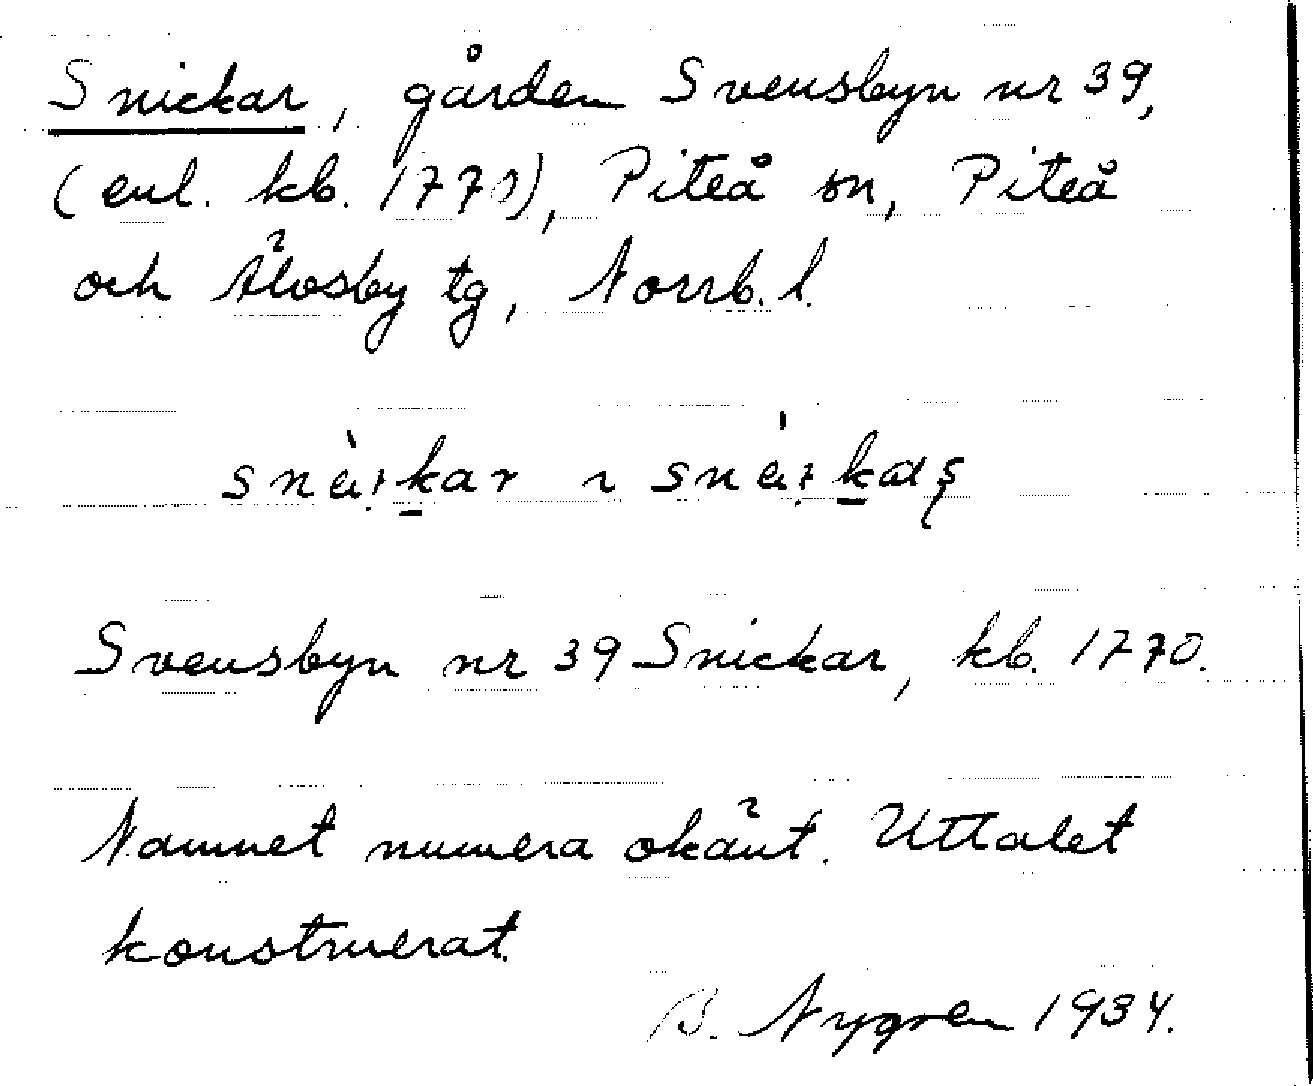 Snickar, gården Svensbyn nr 39,
(enl. kb. 1770), Piteå sn, Piteå
och Älvsby tg, Norrb. l.
Svensbyn nr 39 Snickar, kb. 1770.
Namnet numera okänt. Uttalet
konstruerat.
B. Nygren 1934.